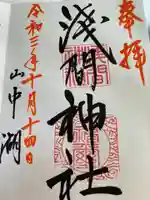 奉拝
浅間神社
山中湖
令和三年十月十四日